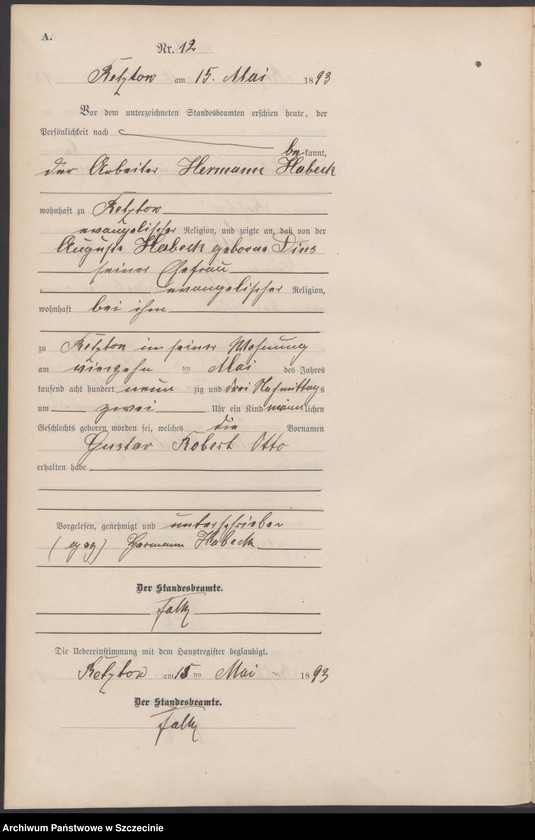 A.
Nr. 12
am 15. Mai 1893
Vor dem unterzeichneten Standesbeamten erschien heute, der
Persönlichkeit nach
bekannt,
der Arbeiter Hermann Habeck
wohnhaft zu
evangelischer Religion, und zeigte an, daß von der
Auguste Habeck geborne
seiner Ehefrau
evangelischer Religion,
wohnhaft bei ihm
zu in seiner Wohnung
am vierzehn ten Mai des Jahres
tausend acht hundert neun zig und drei Nachmittags
um zwei Uhr ein Kind männlichen
Geschlechts geboren worden sei, welches die Vornamen
Gustav Robert Otto
erhalten habe
Vorgelesen, genehmigt und unterschrieben
(gez) Hermann Habeck
Der Standesbeamte.
Falk
Die Uebereinstimmung mit dem Hauptregister beglaubigt.
am 15 ten Mai 1893
Der Standesbeamte.
Falk
Archiwum Państwowe w Szczecinie